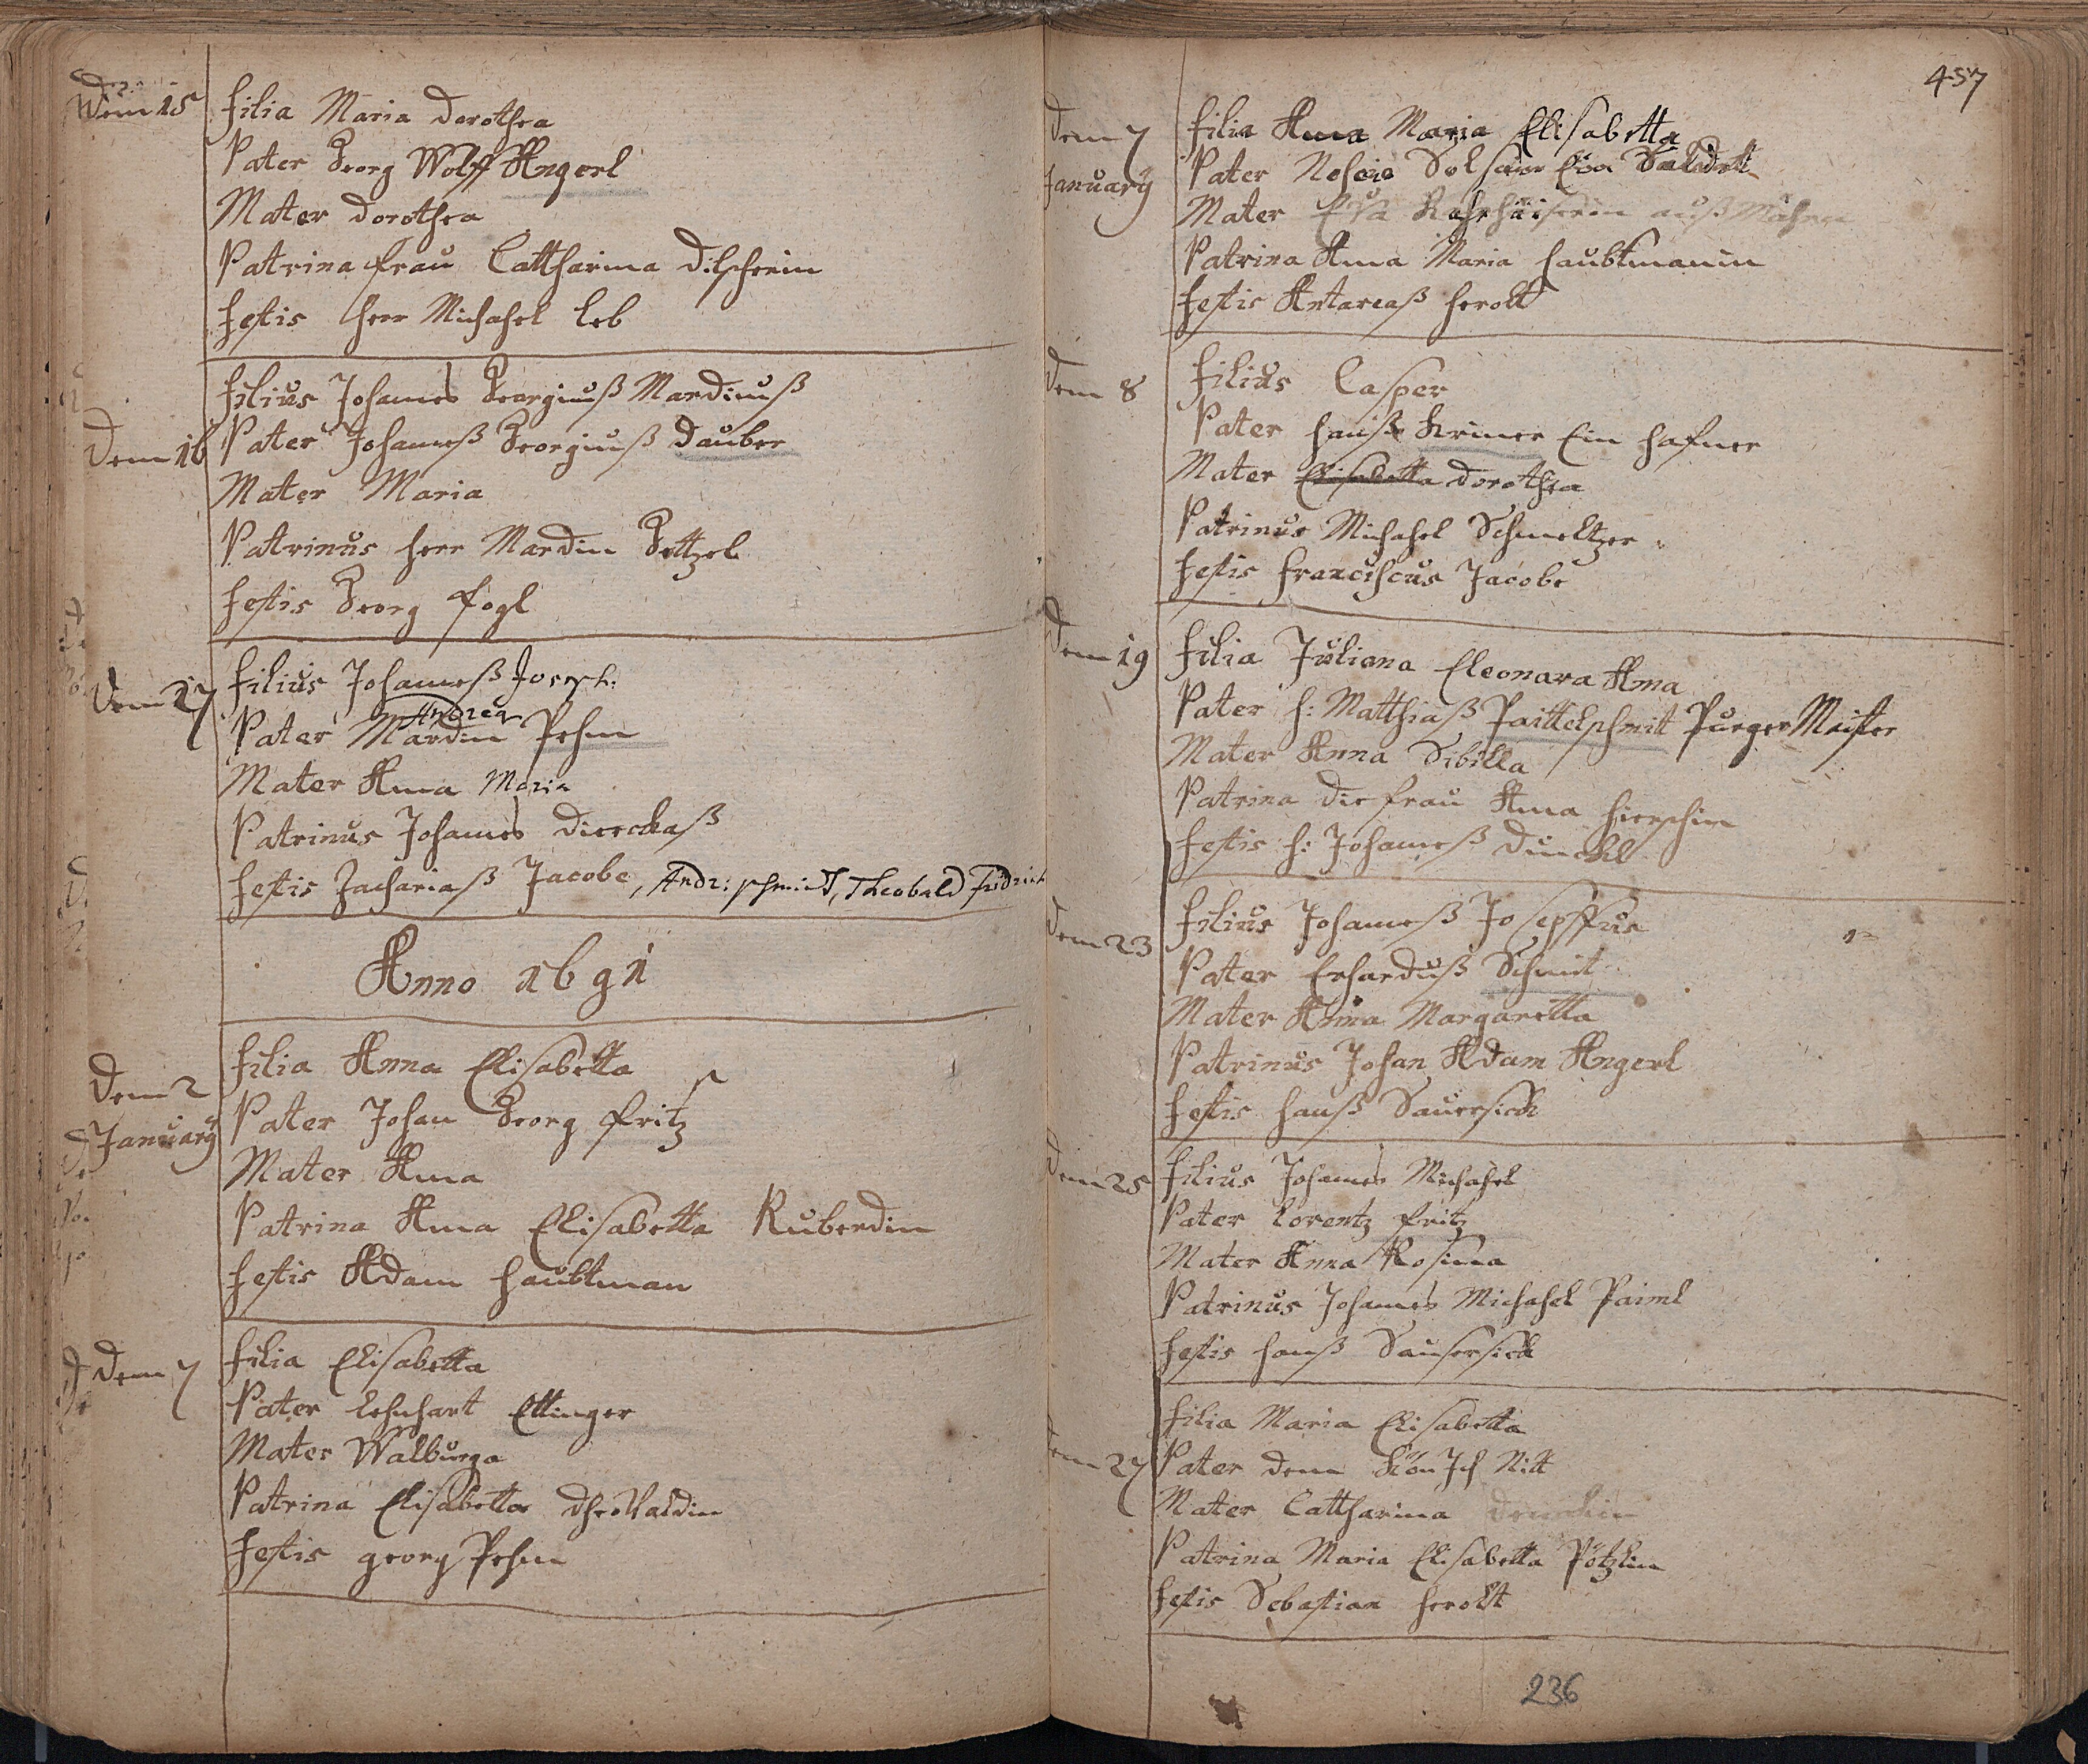 Dem 15
Filia Maria Dorothea
Pater Georg Wolff Angerl
Mater Dorothea
Patrina Frau Cattharina Dilscherin
Testis Herr Michahel Leb
Dem 16
Filius Johannes Georgiuß Mardinuß
Pater Johanneß Georgiuß Dauber
Mater Maria
Patrinus Herr Mardin Göttzel
Testis Georg Fogl
Dem 27
Filius Johanneß Joseph.
Andrea
Pater Mardin Pehm
Mater Anna Maria
Patrinus Johannes Dierckaß
Testis Zachariaß Jacobe, Andr: schmidt, Theobald Fridrich
Anno 1691
Dem 2 January
Filia Anna Elisabetta
Pater Johan Georg Fritz
Mater Anna
Patrina Anna Elisabetta Ruberdin
Testis Adam Haubtman
Dem 7
Filia Elisabetta
Pater Lehnhart Ettinger
Mater Walburga
Patrina Elisabetta
Testis georg Pehm
457
Dem 7 January
Filia Anna Maria Elisabetta
Pater
Mater Eva auß Mähren
Patrina Anna Maria Haubtmanin
Testis Antareaß Herolt
Dem 8
Filius Casper
Pater Hanß Kriner Ein Hafner
Mater Elisabetta Dorothea
Patrinus Michahel Schmeltzer
Testis Francihcus Jacobe
Dem 19
Filia Juliana Eleonara Anna
Pater H: Matthiaß Paittelschmit Purger Meister
Mater Anna Sibilla
Patrina die Frau Anna Hierschin
Testis H: Johanneß Dunckl
Dem 23
Filius Johanneß Josepffus
Pater Erharduß Schmit
Mater Anna Margaretta
Patrinus Johan Adam Angerl
Testis Hanß Sauersick
Dem 25
Filius Johannes Michahel
Pater Lorentz Fritz
Mater Anna Rosina
Patrinus Johannes Michahel Paiml
Testis Hanß Sauersick
Dem 27
Filia Maria Elisabetta
Pater denn Kön Ich Nitt
Mater Cattharina
Patrina Maria Elisabetta Pötzlin
Testis Sebastian Herolt
236